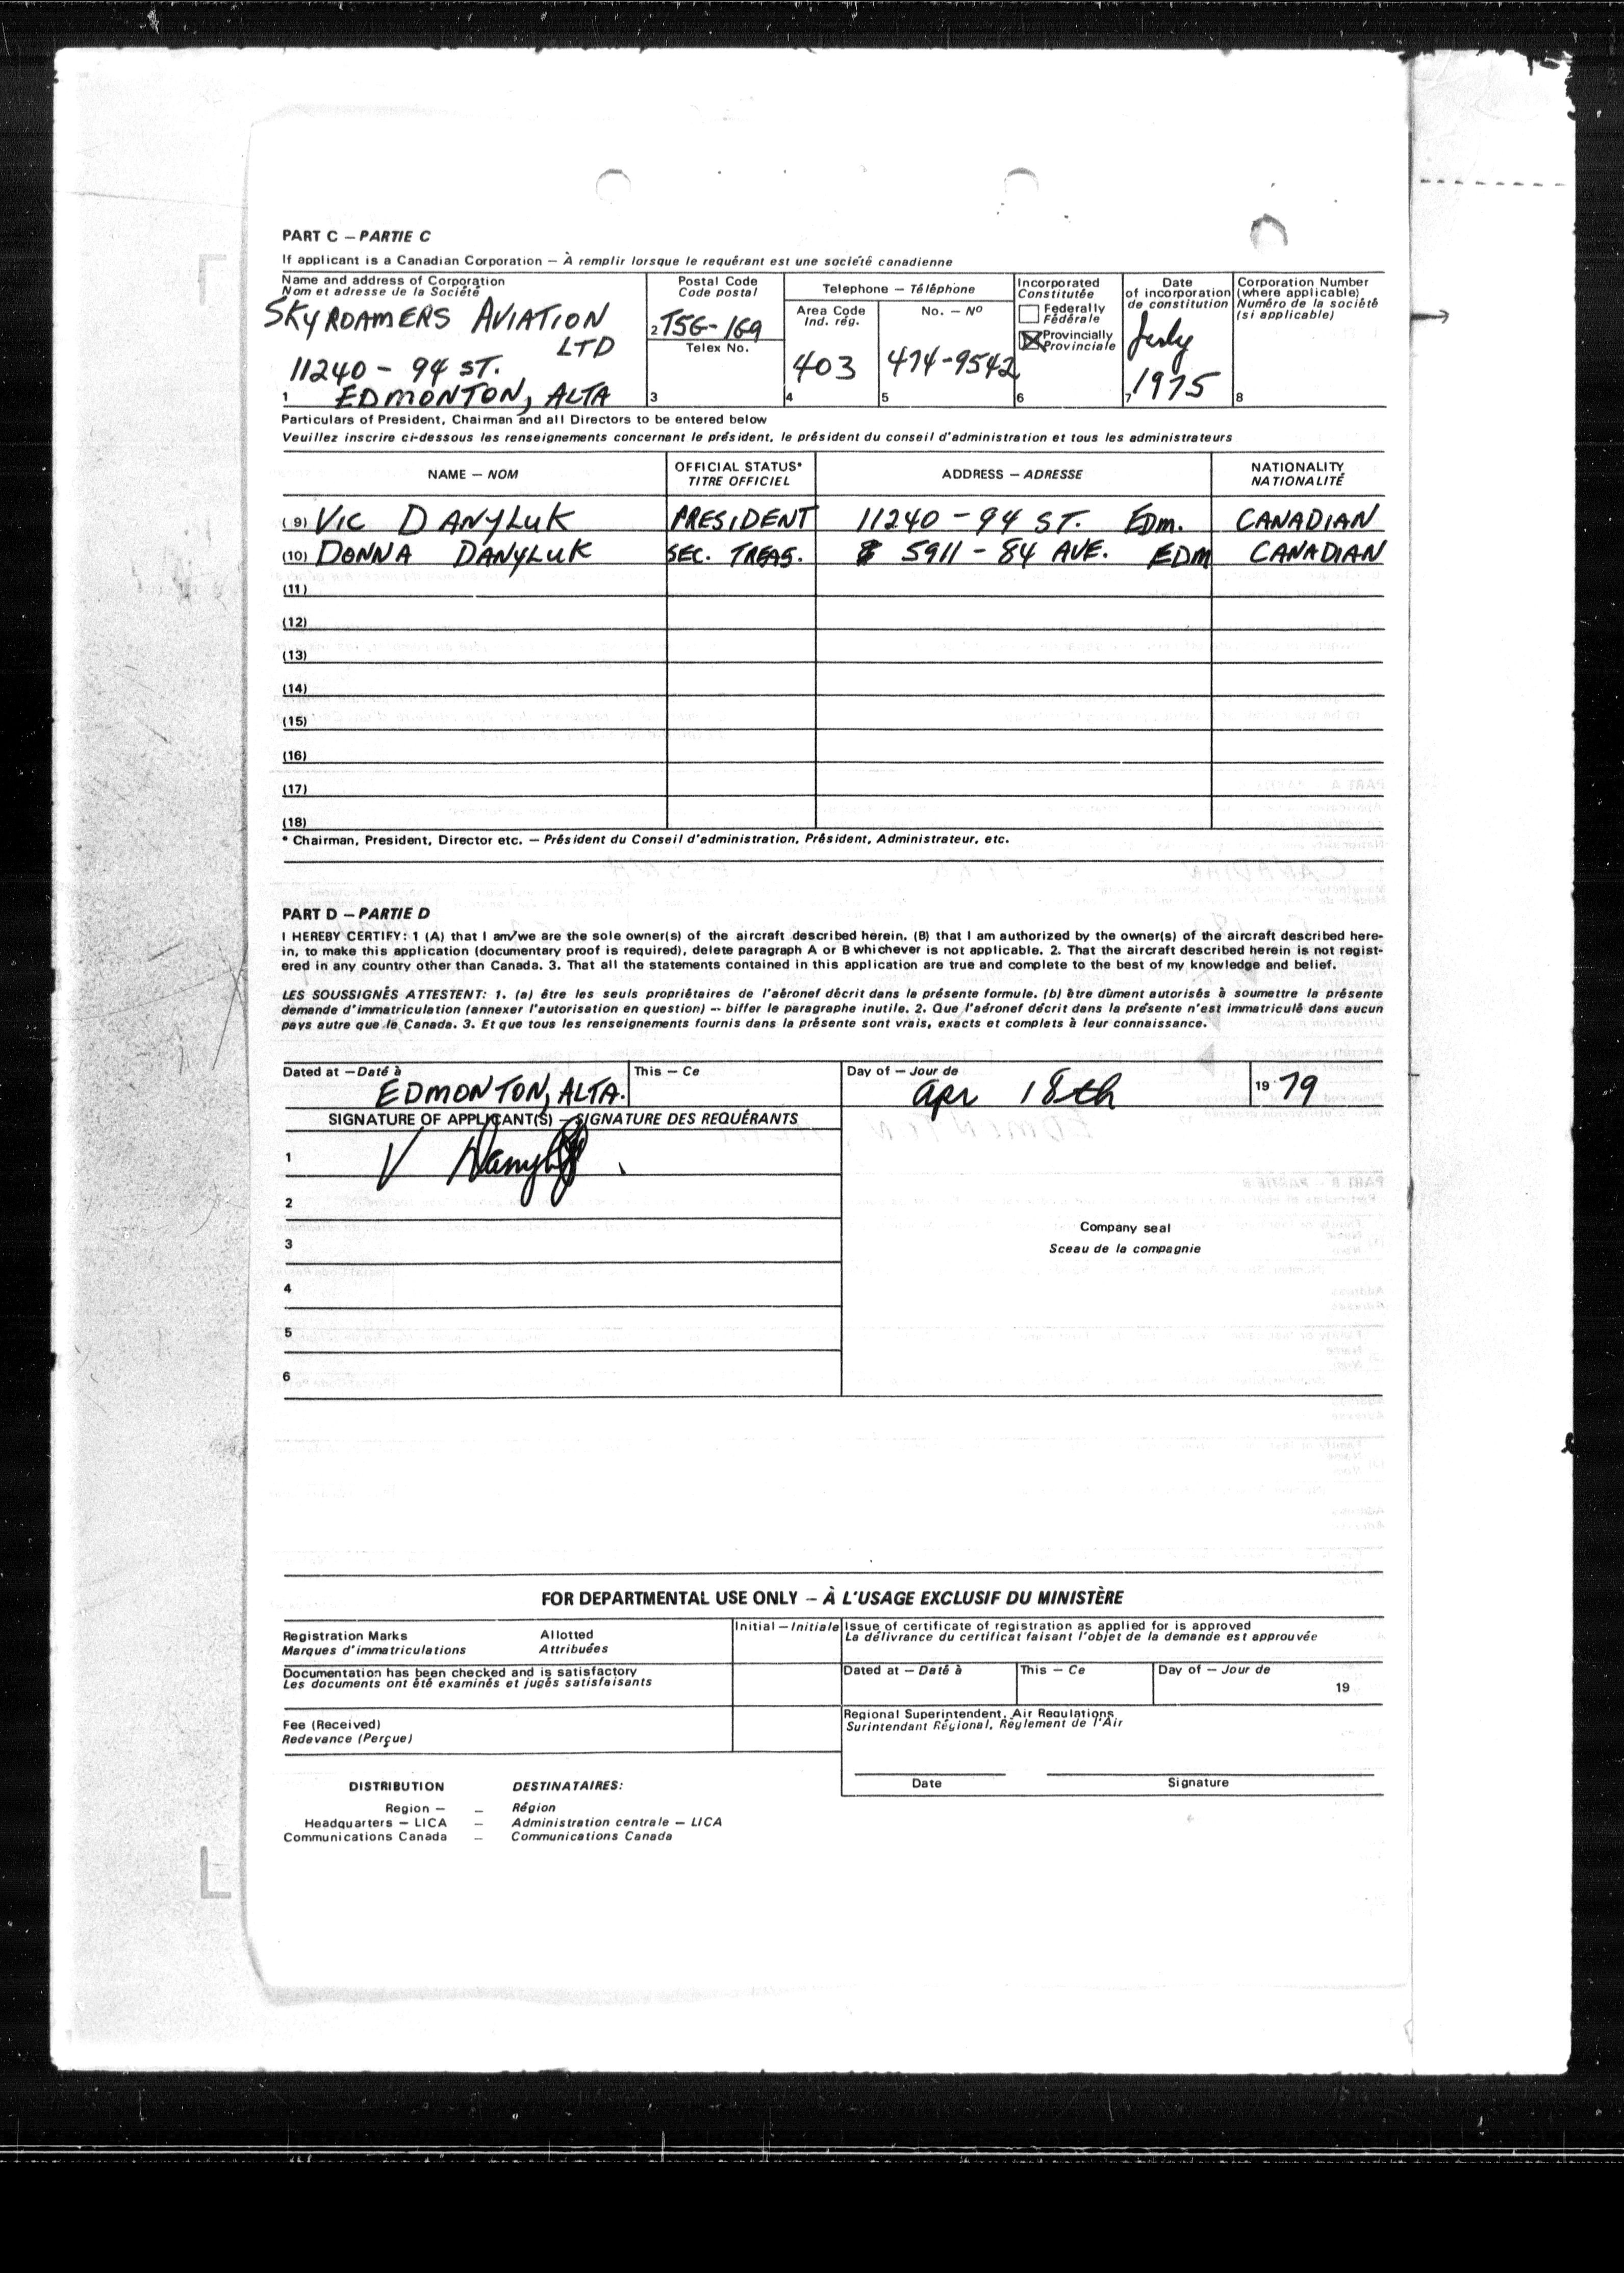 PART C – PARTIE C
If applicant is a Canadian Corporation – À remplir lorsque le requérant est une société canadienne
Name and address of Corporation
Nom et adresse de la Société
SKYROAMERS AVIATION
LTD
11240 - 94 ST.
1 EDMONTON, ALTA
Postal Code
Code postal
2 T5G-1G9
Telex No.
3
Telephone – Téléphone
Area Code
Ind. rég.
403
4
No. – Nº
474-9542
5
Incorporated
Constituée
Federally
Fédérale
Provincially
Provinciale
6
Date
of incorporation
de constitution
July
7 1975
Corporation Number
(where applicable)
Numéro de la société
(si applicable)
8
Particulars of President, Chairman and all Directors to be entered below
Veuillez inscrire ci-dessous les renseignements concernant le président, le président du conseil d'administration et tous les administrateurs
NAME – NOM OFFICIAL STATUS* TITRE OFFICIEL ADDRESS – ADRESSE NATIONALITY NATIONALITÉ
(9) VIC DANYLUK PRESIDENT 11240 - 94 ST. EDM. CANADIAN
(10) DONNA DANYLUK SEC. TREAS. 5911 - 84 AVE. EDM CANADIAN
(11)
(12)
(13)
(14)
(15)
(16)
(17)
(18)
* Chairman, President, Director etc. – Président du Conseil d'administration, Président, Administrateur, etc.
PART D – PARTIE D
I HEREBY CERTIFY: 1 (A) that I am/we are the sole owner(s) of the aircraft described herein. (B) that I am authorized by the owner(s) of the aircraft described here-
in, to make this application (documentary proof is required), delete paragraph A or B whichever is not applicable. 2. That the aircraft described herein is not regist-
ered in any country other than Canada. 3. That all the statements contained in this application are true and complete to the best of my knowledge and belief.
LES SOUSSIGNÉS ATTESTENT: 1. (a) être les seuls propriétaires de l'aéronef décrit dans la présente formule. (b) être dûment autorisés à soumettre la présente
demande d'immatriculation (annexer l'autorisation en question) -- biffer le paragraphe inutile. 2. Que l'aéronef décrit dans la présente n'est immatriculé dans aucun
pays autre que le Canada. 3. Et que tous les renseignements fournis dans la présente sont vrais, exacts et complets à leur connaissance.
Dated at – Daté à This – Ce Day of – Jour de
EDMONTON, ALTA. apr 18th 19 79
SIGNATURE OF APPLICANT(S) – SIGNATURE DES REQUÉRANTS
1 V Danyluk
2
3
4
5
6
Company seal
Sceau de la compagnie
FOR DEPARTMENTAL USE ONLY – À L'USAGE EXCLUSIF DU MINISTÈRE
Registration Marks Allotted
Marques d'immatriculations Attribuées
Initial – Initiale
Issue of certificate of registration as applied for is approved
La délivrance du certificat faisant l'objet de la demande est approuvée
Documentation has been checked and is satisfactory
Les documents ont été examinés et jugés satisfaisants
Dated at – Daté à This – Ce Day of – Jour de
19
Fee (Received)
Redevance (Perçue)
Regional Superintendent, Air Regulations
Surintendant Régional, Règlement de l'Air
Date Signature
DISTRIBUTION DESTINATAIRES:
Region – – Région
Headquarters – LICA – Administration centrale – LICA
Communications Canada – Communications Canada